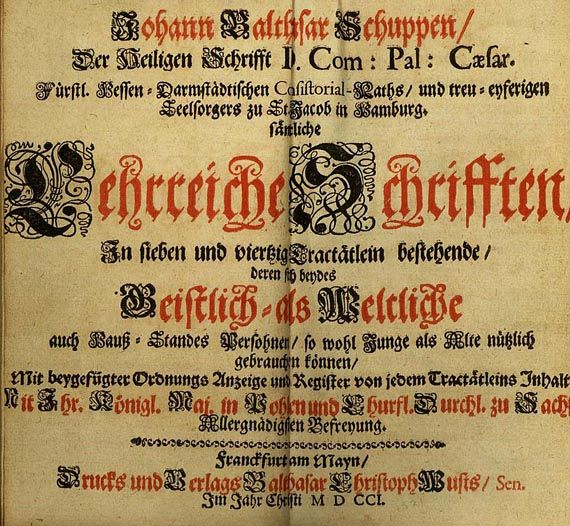 Johann Balthasar Schuppen/
Der Heiligen Schrifft D. Com: Pal: Cæsar.
Fürstl. Hessen-Darmstädtischen Cosistorial-Raths/ und treu-eyferigen
Seelsorgers zu St Jacob in Hamburg.
sämtliche
Lehrreiche Schrifften,
In sieben und viertzig Tractätlein bestehende/
deren sich beydes
Geistlich- als Weltliche
auch Hauß-Standes Persohnen/ so wohl Junge als Alte nützlich
gebrauchen können/
Mit beygefügter Ordnungs Anzeige und Register von jedem Tractätleins Inhalt
Mit Ihr. Königl. Maj. in Pohlen und Churfl. Durchl. zu Sachs
Allergnädigsten Befreyung.
Franckfurt am Mayn/
Drucks und Verlags Balthasar Christoph Wusts/ Sen.
Im Jahr Christi M D CCI.